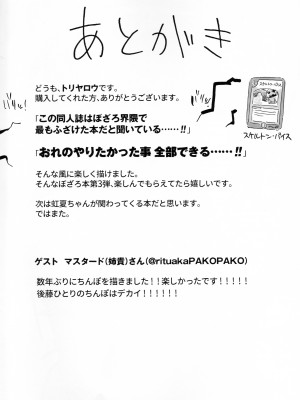 あとがき
どうも、トリヤロウです。
購入してくれた方、ありがとうございます。
「この同人誌はぼざろ界隈で
最もふざけた本だと聞いている……!!」
「おれのやりたかった事 全部できる……!!」
スケルトン・バイス
そんな風に楽しく描けました。
そんなぼざろ本第3弾、楽しんでもらえてたら嬉しいです。
次は虹夏ちゃんが関わってくる本だと思います。
ではまた。
ゲスト マスタード(姉貴)さん(@rituakaPAKOPAKO)
数年ぶりにちんぽを描きました!!楽しかったです!!!!!!
後藤ひとりのちんぽはデカイ!!!!!!